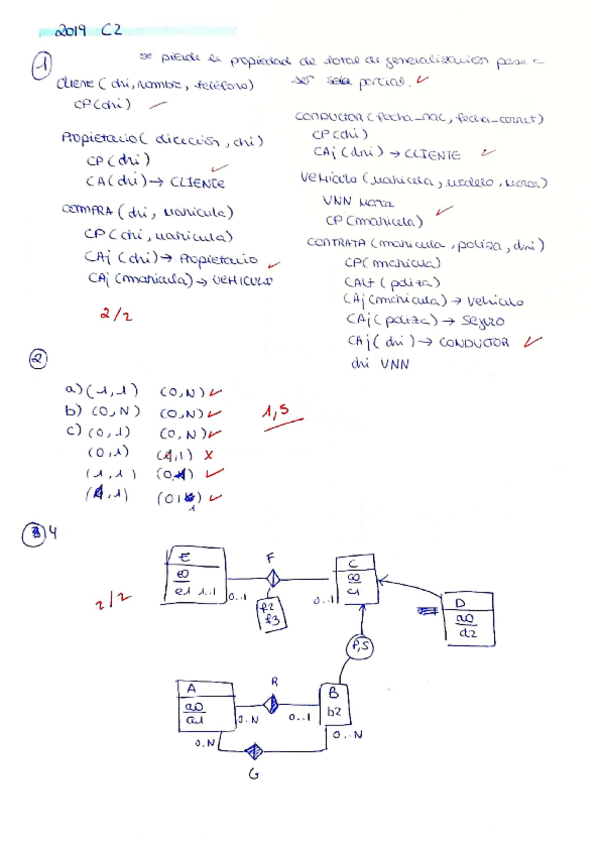 2019 C2
1
se pierde la propiedad de total de generalización pasa a
ser solo parcial.
CLIENTE (dni, nombre, teléfono)
CP(dni)
Propietario (dirección, dni)
CP(dni)
CA(dni)→ CLIENTE
COMPRA (dni, matricula)
CP(dni, matricula)
CAj (dni)→ Propietario
CAj (matricula)→ VEHICULO
2/2
CONDUCTOR (fecha_nac, fecha_carnet)
CP(dni)
CAj (dni) → CLIENTE
VEHÍCULO (matricula, modelo, marca)
VNN marca
CP(matricula)
CONTRATA (matricula, poliza, dni)
CP(matricula)
CAlt (poliza)
CAj (matricula) → Vehículo
CAj (poliza) → Seguro
CAj (dni) → CONDUCTOR
dni VNN
2
a) (1,1) (0,N)
b) (0,N) (0,N)
c) (0,1) (0,N)
(0,1) (1,1)
(1,1)
1,5
4
2/2
E
e0
e1 1..1
0..1
F
f2
f3
0..1
C
a0
c1
D
a0
d2
P,S
A
a0
a1
R
0..N
0..1
B
b2
0..N
0..N
G